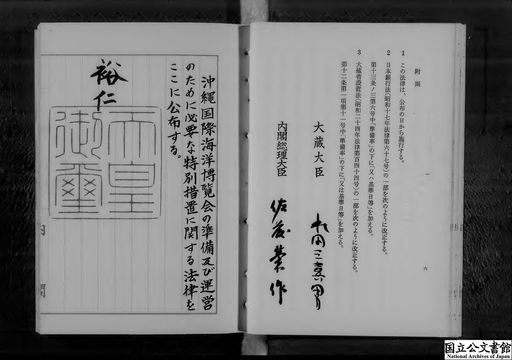 附則
1 この法律は、公布の日から施行する。
2 日本銀行法(昭和十七年法律第六十七号)の一部を次のように改正する。
第十三条ノ三第六号中「準備率」の下に「又ハ基準日等」を加える。
3 大蔵省設置法(昭和二十四年法律第百四十四号)の一部を次のように改正する。
第十二条第一項第十一号中「準備率」の下に「又は基準日等」を加える。
六
大蔵大臣
水田三喜男
内閣総理大臣
佐藤榮作
沖縄国際海洋博覧会の準備及び運営
のために必要な特別措置に関する法律を
ここに公布する。
裕仁
天皇御璽
国立公文書館
National Archives of Japan